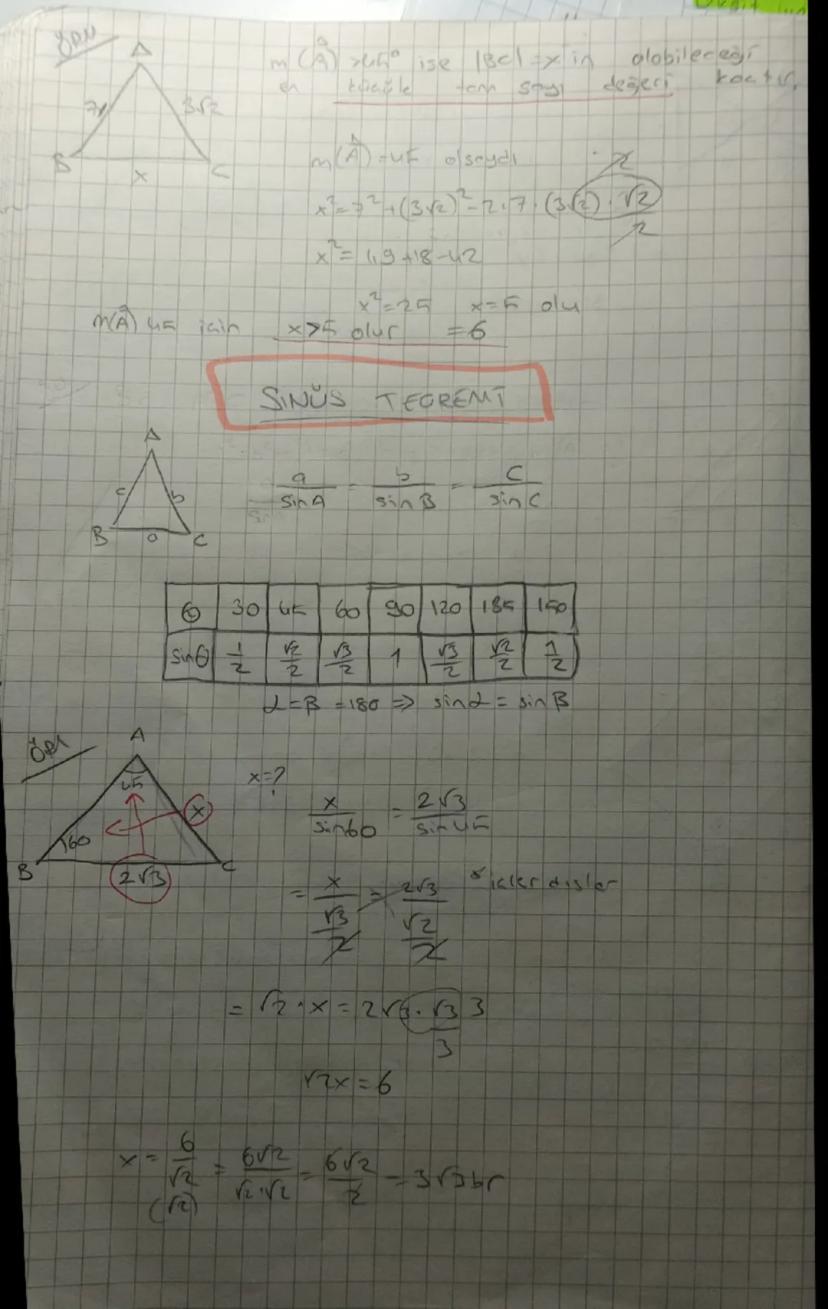 ÖRN
A
m(Â) >45° ise |BC| = x in alabileceği
en küçük tam sayı değeri kaçtır.
7 3√2
B x C
m(Â)=45 olsaydı
x²=7²+(3√2)²-2.7.(3√2).√2/2
x²=49+18-42
x²=25 x=5 olu
m(Â) 45 için x>5 olur =6
SINÜS TEOREMİ
A
c b
B a C
a/sinA = b/sinB = c/sinC
θ 30 45 60 90 120 135 150
sinθ 1/2 √2/2 √3/2 1 √3/2 √2/2 1/2
α=B=180 ⇒ sinα = sinB
ÖRN
A
45
x
60
B 2√3 C
x=?
x/sin60 = 2√3/sin45
= x/(√3/2) = 2√3/(√2/2) *içler dışlar
= √2.x = 2√3.√3 3
3
√2x = 6
x = 6/√2 = 6√2/√2.√2 = 6√2/2 = 3√3br
(√2)